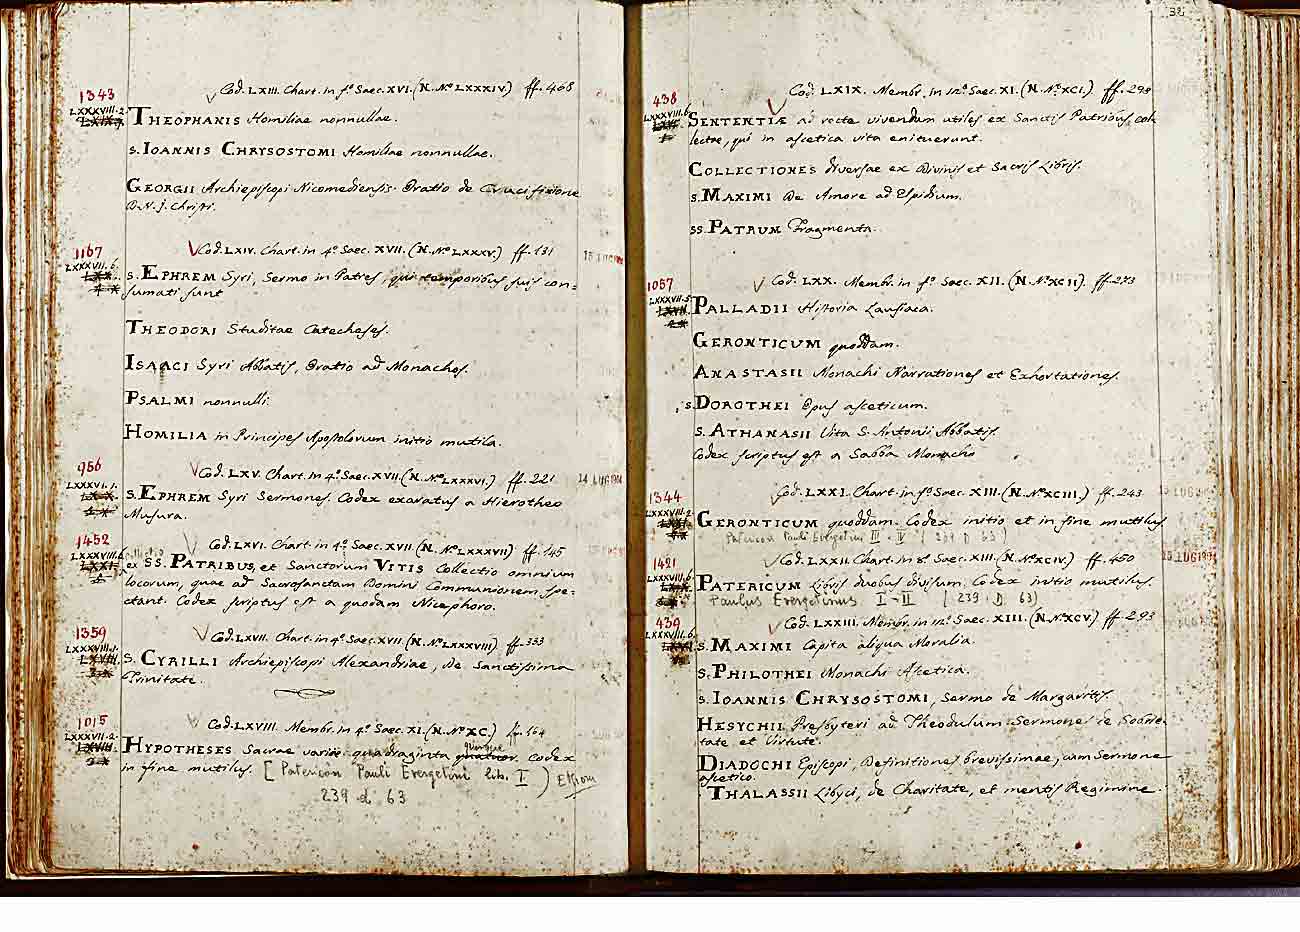 1343
Cod. LXIII. Chart. in fº. Saec. XVI. (N. Nº LXXXIV.) ff. 468
LXXXVIII.2.
THEOPHANIS Homiliae nonnullae.
S. IOANNIS CHRYSOSTOMI Homiliae nonnullae.
GEORGII Archiepiscopi Nicomediensis Oratio de Crucifixione
D. N. J. Christi.
1167
Cod. LXIV. Chart. in 4º. Saec. XVII. (N. Nº LXXXV.) ff. 131
LXXXVII.6.
S. EPHREM Syri, Sermo in Patres, qui temporibus suis con=
sumati sunt
THEODORI Studitae Catecheses.
ISAACI Syri Abbatis, Oratio ad Monachos.
PSALMI nonnulli.
HOMILIA in Principes Apostolorum initio mutila.
986
Cod. LXV. Chart. in 4º. Saec. XVII. (N. Nº LXXXVI.) ff. 221
LXXXVI.1.
S. EPHREM Syri Sermones. Codex exaratus a Hierotheo
Musura.
1452
Cod. LXVI. Chart. in 4º. Saec. XVII. (N. Nº LXXXVII) ff. 145
LXXXVIII.
ex SS. PATRIBUS, et Sanctorum VITIS Collectio omnium
locorum, quae ad Sacrosanctam Domini Communionem spe=
ctant. Codex scriptus est a quodam Nicephoro.
1359
Cod. LXVII. Chart. in 4º. Saec. XVII. (N. Nº LXXXVIII) ff. 333
LXXXVIII.1.
S. CYRILLI Archiepiscopi Alexandriae, de Sanctissima
Trinitate.
1015
Cod. LXVIII. Membr. in 4º. Saec. XI. (N. Nº XC.) ff. 164
LXXXVII.2.
HYPOTHESES Sacrae variae quadraginta quinque quatuor. Codex
in fine mutilus. [Patericon Pauli Evergetini lib. I)
239 d 63
438
Cod. LXIX. Membr. in 12º. Saec. XI. (N. Nº. XCI.) ff. 298
LXXXVIII.6.
SENTENTIÆ ad recte vivendum utiles ex Sanctis Patribus col=
lectae, qui in ascetica vita enituerunt.
COLLECTIONES diversae ex Divinis et Sacris Libris.
S. MAXIMI De Amore ad Elpidium.
SS. PATRUM Fragmenta.
1057
Cod. LXX. Membr. in fº. Saec. XII. (N. Nº. XCII.) ff. 273
LXXXVII.5.
PALLADII Historia Lausiaca.
GERONTICUM quoddam.
ANASTASII Monachi Narrationes et Exhortationes.
S. DOROTHEI Opus asceticum.
S. ATHANASII Vita S. Antonii Abbatis.
Codex scriptus est a Sabba Monacho
1344
Cod. LXXI. Chart. in fº. Saec. XIII. (N. Nº XCIII.) ff. 243
LXXXVIII.2.
GERONTICUM quoddam. Codex initio et in fine mutilus
Patericon Pauli Evergetini III-IV (239 D 63)
1421
Cod. LXXII. Chart. in 8º. Saec. XIII. (N. Nº. XCIV.) ff. 450
LXXXVIII.6.
15 LUG 1901
PATERICUM Libris duobus divisum. Codex initio mutilus.
Paulus Evergetinus I-II (239. D. 63)
439
Cod. LXXIII. Membr. in 12º. Saec. XIII. (N. Nº XCV.) ff. 293
LXXXVIII.6.
S. MAXIMI Capita aliqua Moralia.
S. PHILOTHEI Monachi Ascetica.
S. IOANNIS CHRYSOSTOMI, Sermo de Margaritis.
HESYCHII Presbyteri ad Theodulum Sermones de Sobrie=
tate et Virtute.
DIADOCHI Episcopi, Definitiones brevissimae, cum Sermone
ascetico.
THALASSII Libyci, de Charitate, et mentis Regimine.